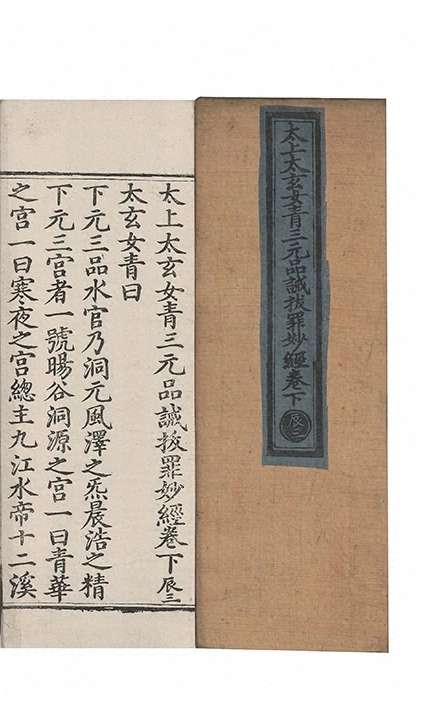 太上太玄女青三元品誡拔罪妙經卷下
辰三
太上太玄女青三元品誡拔罪妙經卷下 辰三
太玄女青曰
下元三品水官乃洞元風澤之炁晨浩之精
下元三宮者一號暘谷洞源之宮一曰青華
之宮一曰寒夜之宮總主九江水帝十二溪